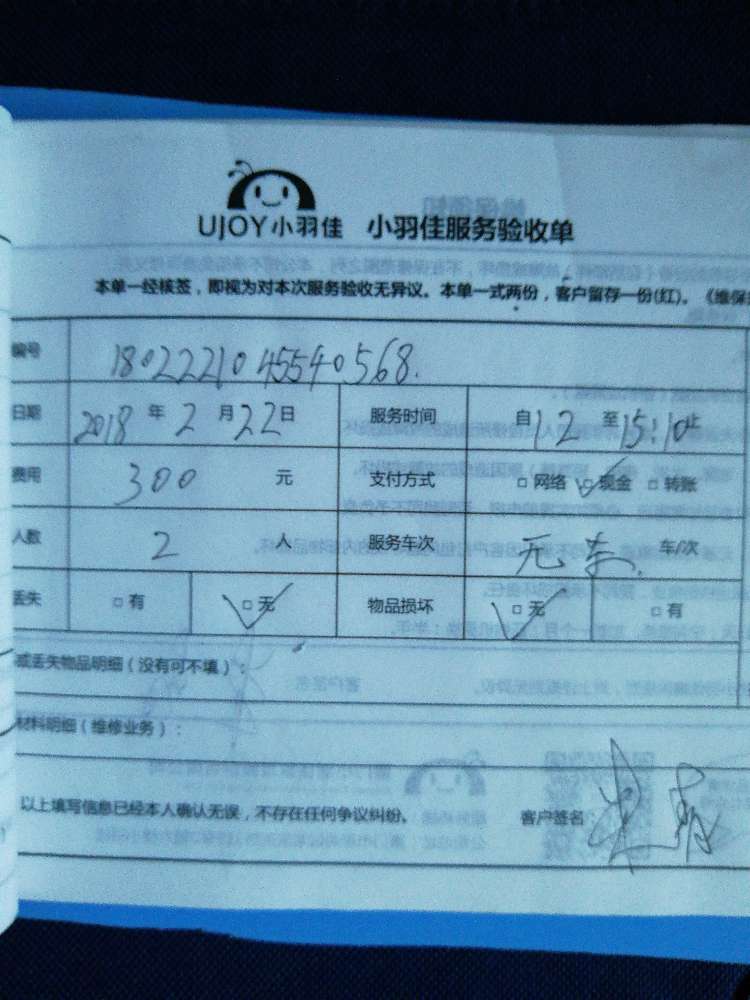 UJOY小羽佳 小羽佳服务验收单
本单一经核签，即视为对本次服务验收无异议。本单一式两份，客户留存一份(红)。《维保
编号 1802221045540568.
日期 2018 年 2 月 22 日 服务时间 自 12 至 15:10 止
费用 300 元 支付方式 □网络 □现金 □转账
人数 2 人 服务车次 无车. 车/次
丢失 □有 □无 物品损坏 □无 □有
或丢失物品明细（没有可不填）：
材料明细（维修业务）：
以上填写信息已经本人确认无误，不存在任何争议纠纷。 客户签名：